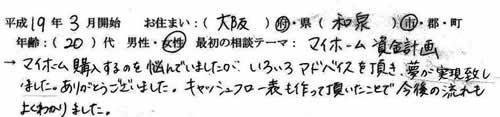 平成19年3月開始 お住まい：（大阪）府・県（和泉）市・郡・町
年齢：（20）代 男性・女性 最初の相談テーマ：マイホーム資金計画
→マイホーム購入するのを悩んでいましたが、いろいろアドバイスを頂き、夢が実現致し
ました。ありがとうございました。キャッシュフロー表も作って頂いたことで今後の流れも
よくわかりました。